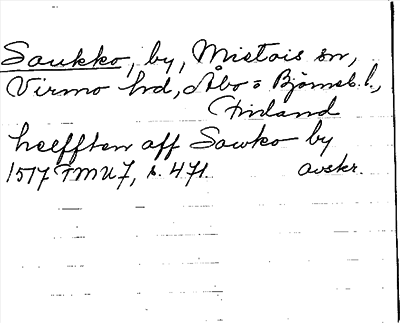 Saukko, by, Mietois sn,
Virmo hd, Åbo = Björneb. l.,
Finland
helfften aff Sawko by
1517 FMU 7, s. 471. avskr.